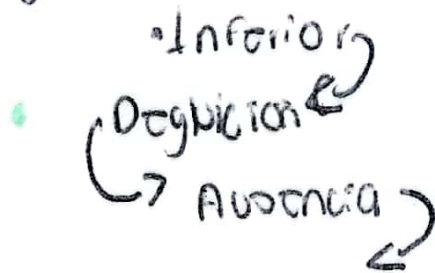 ·Inferior
Deglución
Ausencia